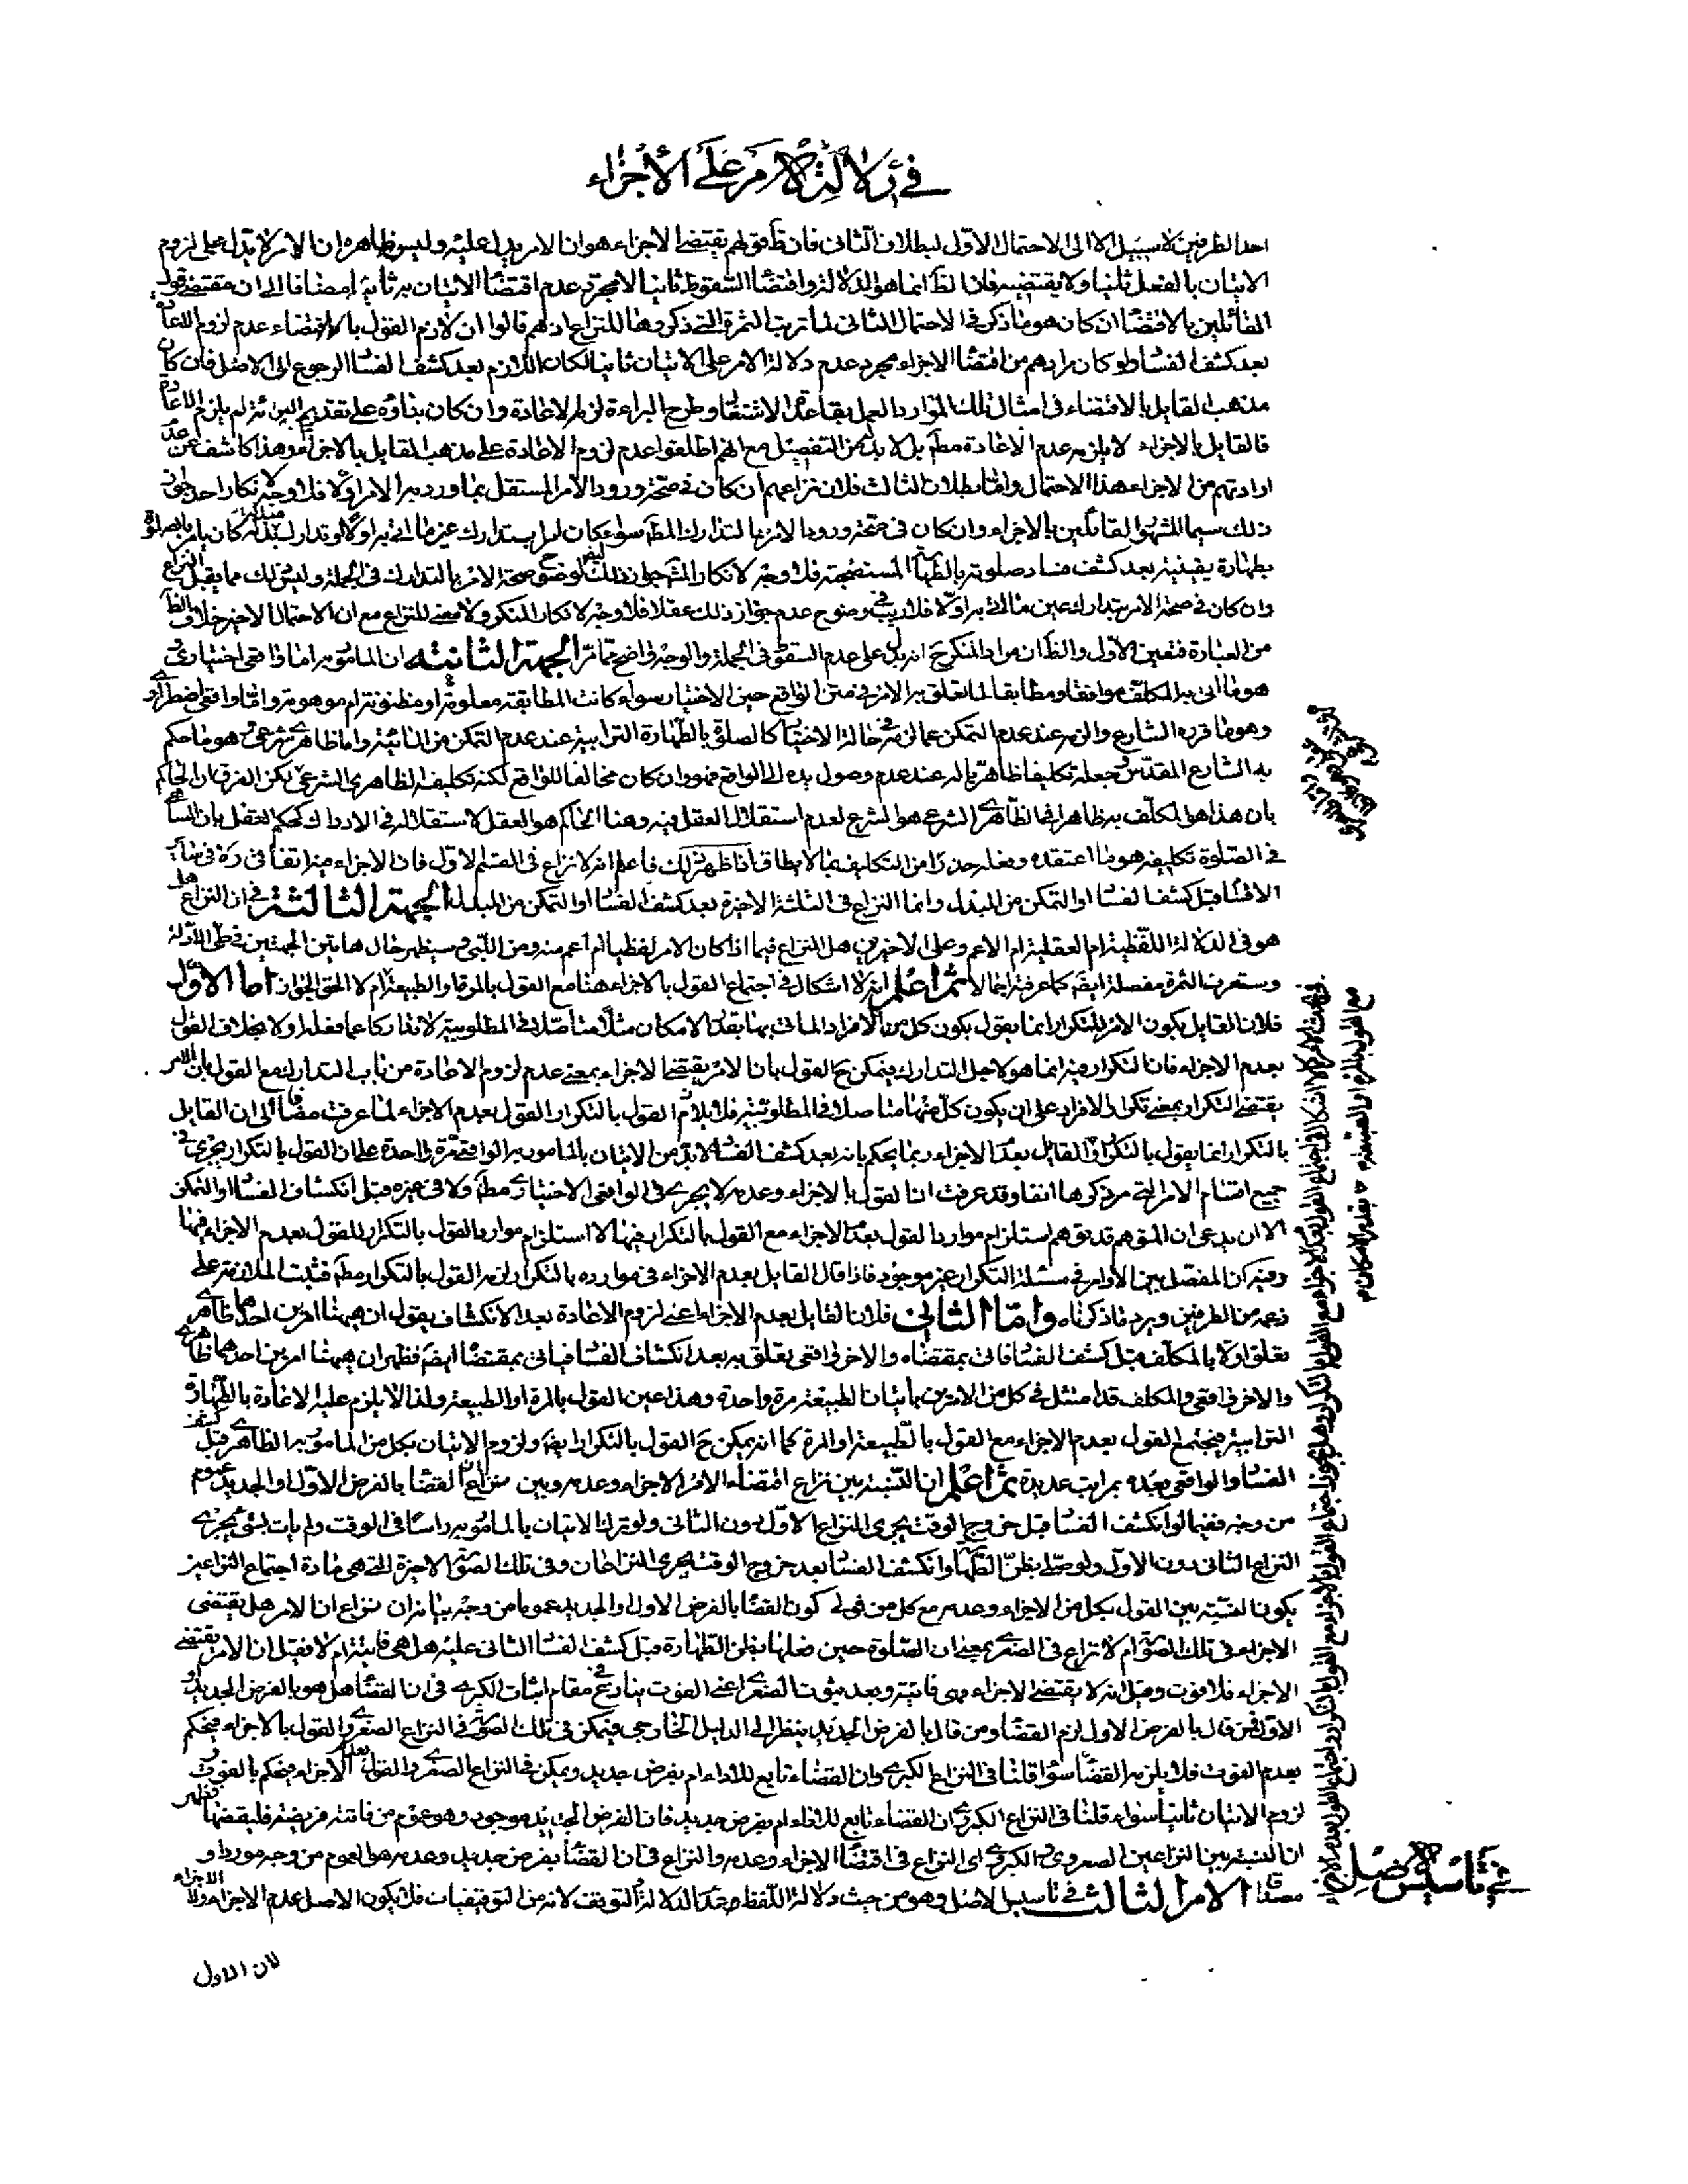 في دلالة الامر على الأجزاء
احد الطرفين لا سبيل الا الى الاحتمال الاول لبطلان الثاني فان ظ قولهم يقتضى الاجزاء هو ان الامر يدل عليه وليس ظاهره ان الامر لا يدل على لزوم
الاتيان بالفعل ثانيا ولا يقتضيه فان الظ انما هو الدلالة واقتضا السقوط ثانيا لا مجرد عدم اقتضا الاتيان به ثانية مضافا الى ان مقتضى قول
القائلين بالاقتضا ان كان هو ما ذكر في الاحتمال الثاني لما ترتب الثمرة التي ذكروها للنزاع اذ هم قالوا ان لازم القول بالاقتضاء عدم لزوم الاعادة
بعد كشف الفسا ولو كان مرادهم من اقتضا الاجزاء مجرد عدم دلالة الامر على الاتيان ثانيا لكان اللازم بعد كشف الفسا الرجوع الى الاصل فان كان
مذهب القايل بالاقتضاء في امثال تلك الموارد العمل بقاعدة الاشتغال وطرح البراءة لزم الاعادة وان كان بناؤه على تقديم البرائة لم يلزم الاعادة
فالقايل بالاجزاء لا يلزمه عدم الاعادة مط بل لا بد من التفصيل مع انهم اطلقوا عدم لزوم الاعادة على مذهب القايل بالاجزاء وهذا كاشف عن عدم
ارادتهم من الاجزاء هذا الاحتمال واما بطلان الثالث فلان نزاعهم ان كان في صحة ورود الامر المستقل بما ورد به الامر اولا فلا وجه لانكار احد جواز
ذلك سيما المشهور القائلين بالاجزاء وان كان في صحة ورود الامر بالتدارك المط سواء كان امرا بتدارك غير ما اتى به اولا او تدارك مثله كان يامر بالصلوة
بطهارة يقينية بعد كشف فساد صلوته بالطهارة المستصحبة فلا وجه لانكار المشهور جواز ذلك لوضوح صحة الامر بالتدارك في الجملة وليس ذلك مما يقبل النزاع
وان كان في صحة الامر بتدارك عين ما اتى به اولا فلا ريب في وضوح عدم جواز ذلك عقلا فلا وجه لانكار المنكر ولا معنى للنزاع مع ان الاحتمال الاخير خلاف الظ
من العبارة فتعين الاول والظ ان مراد المنكر ح انه يدل على عدم السقوط في الجملة والوجه واضح مما مر الجهة الثانية ان المامور به اما واقعي اختياري و
هو ما اتى به المكلف موافقا ومطابقا لما تعلق به الامر في متن الواقع حين الاختيار سواء كانت المطابقة معلومة او مظنونة ام موهومة واما واقعي اضطراري
وهو ما قرره الشارع والزمه عند عدم التمكن عما لزمه في حالة الاختيار كالصلوة بالطهارة الترابية عند عدم التمكن من المائية واما ظاهري شرعي وهو ما حكم
به الشارع المقدس وجعله تكليفا ظاهريا له عند عدم وصول يده الى الواقع فهو وان كان مخالفا للواقع لكنه تكليفه الظاهري الشرعي لكن الفرق ان الحاكم
بان هذا هو المكلف به ظاهرا في الظاهري الشرعي هو الشرع لعدم استقلال العقل فيه وهنا الحاكم هو العقل لاستقلاله في الادراك كحكم العقل بان الساهي
في الصلوة تكليفه هو ما اعتقده وفعله حذرا من التكليف بما لا يطاق اذا ظهر ذلك فاعلم انه لا نزاع في القسم الاول فان الاجزاء فيه اتفاقي ره في سائر
الاقسا قبل كشف الفسا او التمكن من المبدل وانما النزاع في الثلثة الاخيرة بعد كشف الفسا او التمكن من المبدل الجهة الثالثة في ان النزاع هل
هو في الدلالة اللفظية ام العقلية ام الاعم وعلى الاخيرين هل النزاع فيما اذا كان الامر لفظيا ام اعم منه ومن اللبي وسيظهر حال هاتين الجهتين في طي الادلة
وستعرف الثمرة مفصلة ايضا كما عرفتها اجمالا ثم اعلم انه لا اشكال في اجتماع القول بالاجزاء هنا مع القول بالمرة او الطبيعة ام لا الحق الجواز اما الاول
فلان القايل بكون الامر للتكرار انما يقول بكون كل من الافراد الماتي بها بقدر الامكان مثلا متاصلا في المطلوبية لا تداركا عما فعله اولا بخلاف القول
بعدم الاجزاء فان التكرار فيه انما هو لاجل التدارك فيمكن ح القول بان الامر يقتضى الاجزاء بمعنى عدم لزوم الاعادة من باب التدارك مع القول بان الامر
يقتضى التكرار بمعنى تكرار الافراد على ان يكون كل منها متاصلا في المطلوبية فلا تلازم القول بالتكرار القول بعدم الاجزاء لما عرفت مضافا الى ان القايل
بالتكرار انما يقول بالتكرار والقايل بعدم الاجزاء ربما يحكم بانه بعد كشف الفسا لا بد من الاتيان بالمامور به الواقعي مرة واحدة على ان القول بالتكرار يجرى في
جميع اقسام الامر التي مر ذكرها انفا وقد عرفت ان القول بالاجزاء وعدمه لا يجرى في الواقعي الاختياري مط ولا في غيره قبل انكشاف الفسا او التمكن
الا ان يدعى ان المتوهم قد توهم استلزام موارد القول بعدم الاجزاء مع القول بالتكرار فيها لا استلزام موارد القول بالتكرار للقول بعدم الاجزاء فيها
وفيه ان المفصل بين الاوامر في مسئلة التكرار غير موجود فاذا قال القايل بعدم الاجزاء في موارده بالتكرار لزمه القول بالتكرار مط فثبت الملازمة على
زعمه من الطرفين ويرد ما ذكرناه واما الثاني فلان القايل بعدم الاجزاء اعنى لزوم الاعادة بعد الانكشاف يقول ان هيهنا امرين احدهما ظاهري
تعلق اولا بالمكلف قبل كشف الفسا فاتى بمقتضاه والاخر واقعي تعلق به بعد انكشاف الفسا فياتى بمقتضاه ايضا فظهر ان هيهنا امرين احدهما ظاهري
والاخر واقعي والمكلف قد امتثل في كل من الامرين باتيان الطبيعة مرة واحدة وهذا عين القول بالمرة او الطبيعة ولذا لا يلزم عليه الاعادة بالطهارة
الترابية فيجتمع القول بعدم الاجزاء مع القول بالطبيعة او المرة كما انه يمكن ح القول بالتكرار ايضا ولزوم الاتيان بكل من المامور به الظاهري قبل كشف
الفسا والواقعي بعده بمراتب عديدة ثم اعلم ان النسبة بين نزاع اقتضاء الامر الاجزاء وعدمه وبين نزاع ان القضا بالفرض الاول او الجديد عموم
من وجه ففيما لو انكشف الفسا قبل خروج الوقت يجرى النزاع الاول دون الثاني ولو ترك الاتيان بالمامور به راسا في الوقت ولم يات بشئ يجرى
النزاع الثاني دون الاول ولو صلى بظن الطهارة وانكشف الفسا بعد خروج الوقت يجرى النزاعان وفي تلك الصورة الاخيرة التي هي مادة اجتماع النزاعين
يكون النسبة بين القول بكل من الاجزاء وعدمه مع كل من قولي كون القضا بالفرض الاول والجديد عموما من وجه بيانه ان نزاع ان الامر هل يقتضى
الاجزاء في تلك الصورة ام لا نزاع في الصغرى بمعنى ان الصلوة حين فعلها بظن الطهارة قبل كشف الفسا الثاني عليه هل هي فائتة ام لا فقيل ان الامر يقتضى
الاجزاء فلا فوت وقيل انه لا يقتضى الاجزاء فهي فائتة وبعد ثبوت الصغرى اعنى الفوت ينازع في مقام اثبات الكبرى في ان القضا هل هو بالفرض الجديد او
الاول فمن قال بالفرض الاول لزم القضا ومن قال بالفرض الجديد ينظر الى الدليل الخارجي فيمكن في تلك الصورة في النزاع الصغروي القول بالاجزاء فيحكم
بعدم الفوت فلا يلزمه القضا سواء قلنا في النزاع الكبروي ان القضاء تابع للاداء ام بفرض جديد ويمكن في النزاع الصغروي القول بعدم الاجزاء فيحكم بالفوت و
لزوم الاتيان ثانيا سواء قلنا في النزاع الكبروي ان القضاء تابع للاداء ام بفرض جديد فان الفرض الجديد موجود وهو عموم من فاتته فريضة فليقضها فظهر
ان النسبة بين النزاعين الصغروي والكبروي اى النزاع في اقتضا الاجزاء وعدمه والنزاع في ان القضا بفرض جديد وعدمه هو العموم من وجه موردا و
مصداقا الامر الثالث في تاسيس الاصل وهو من حيث دلالة اللفظ عدم الدلالة التوقيف لانه من التوقيفيات فلا يكون الاصل عدم الاجزاء ولا الاجزاء
في تاسيس الاصل
مع القول بالمرة او الطبيعة
بقدر الامكان م
لان الاول